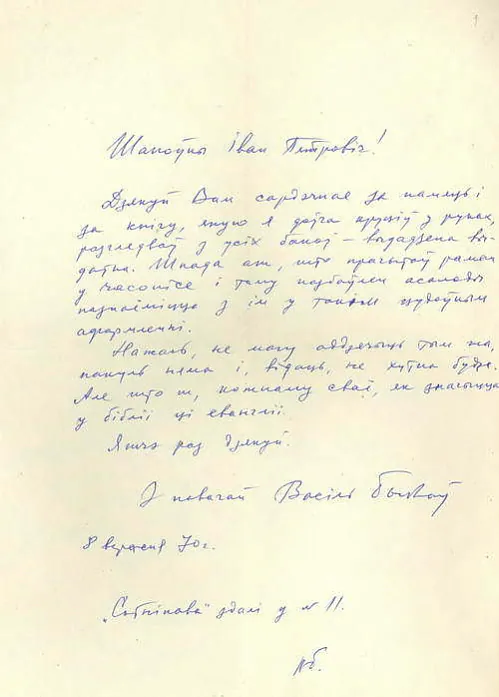 1
Шаноўны Іван Пятровіч!
Дзякуй Вам сардэчнае за памяць і
за кнігу, якую я доўга круціў у руках,
разглядваў з усіх бакоў — выдадзена вы-
датна. Шкада аж, што прачытаў раман
у часопісе і таму пазбаўлен асалоды
пазнаёміцца з ім у такім цудоўным
афармленні.
На жаль, не магу аддзячыць тым жа,
пакуль няма і, відаць, не хутка будзе.
Але што ж, кожнаму сваё, як значыцца
у бібліі ці евангллі.
Яшчэ раз дзякуй.
З павагай Васіль Быкаў
8 верасня 70 г.
„Сотнікава" здалі у № 11.